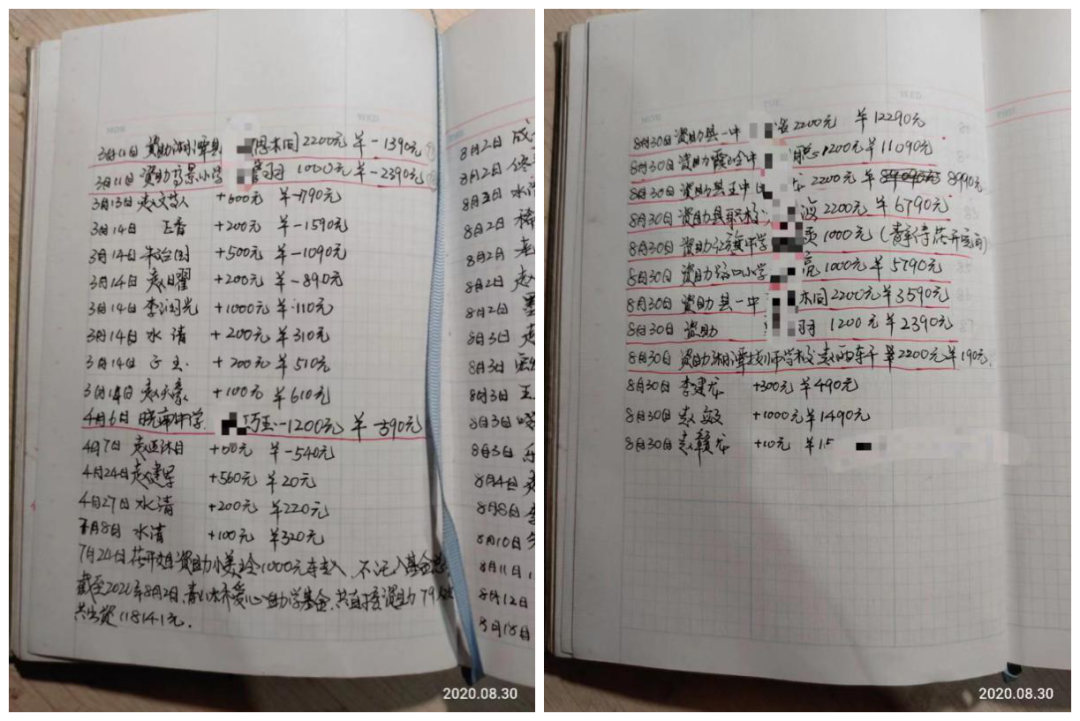 3月11日 资助湘潭县 周本同 2200元 ¥-1390元
3月11日 资助育景小学 羽 1000元 ¥-2390元
3月13日 赵文芬人 +600元 ¥-790元
3月14日 玉香 +200元 ¥-1590元
3月14日 朱治国 +500元 ¥-1090元
3月14日 赵日曜 +200元 ¥-890元
3月14日 李润光 +1000元 ¥110元
3月14日 水清 +200元 ¥310元
3月14日 子玉 +200元 ¥510元
3月14日 赵天豪 +100元 ¥610元
4月6日 晓南中学 巧玉 -1200元 ¥-590元
4月7日 赵亚休日 +50元 ¥-540元
4月24日 赵建军 +560元 ¥20元
4月27日 水清 +200元 ¥220元
月8日 水清 +100元 ¥320元
7月24日花开姐资助小美金1000元 入, 不记入基金总
截至2020年8月2日, 青山水齐爱心助学基金, 共直接资助79
共出资118141元.
8月2日 成
8月2日 佟
8月2日 水
8月2日
8月2日 老
8月2日 赵
8月2日 墨
8月3日 赵
8月3日
8月3日 王
8月3日
8月3日 乐
8月4日
8月8日 李
8月10日
8月11日
8月12日
8月18日
2020.08.30
8月30日 资助县一中 2200元 ¥12290元
8月30日 资助霞 中 聪 1200元 ¥11090元
8月30日 资助县五中 龙 2200元 ¥ 8990元
8月30日 资助县职校 波 2200元 ¥6790元
8月30日 资助 旗中学 1000元 (青 待花开 )
8月30日 资助 口小学 亮 1000元 ¥5790元
8月30日 资助县一中 本同 2200元 ¥3590元
8月30日 资助 羽 1200元 ¥2390元
8月30日 资助湘潭技师学校 赵 ¥2200元 ¥190元.
8月30日 李建龙 +300元 ¥490元
8月30日 赵毅 +1000元 ¥1490元
8月30日 赵赣龙 +10元 ¥15
2020.08.30